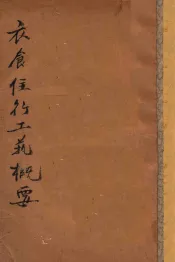 衣食住行工艺概要